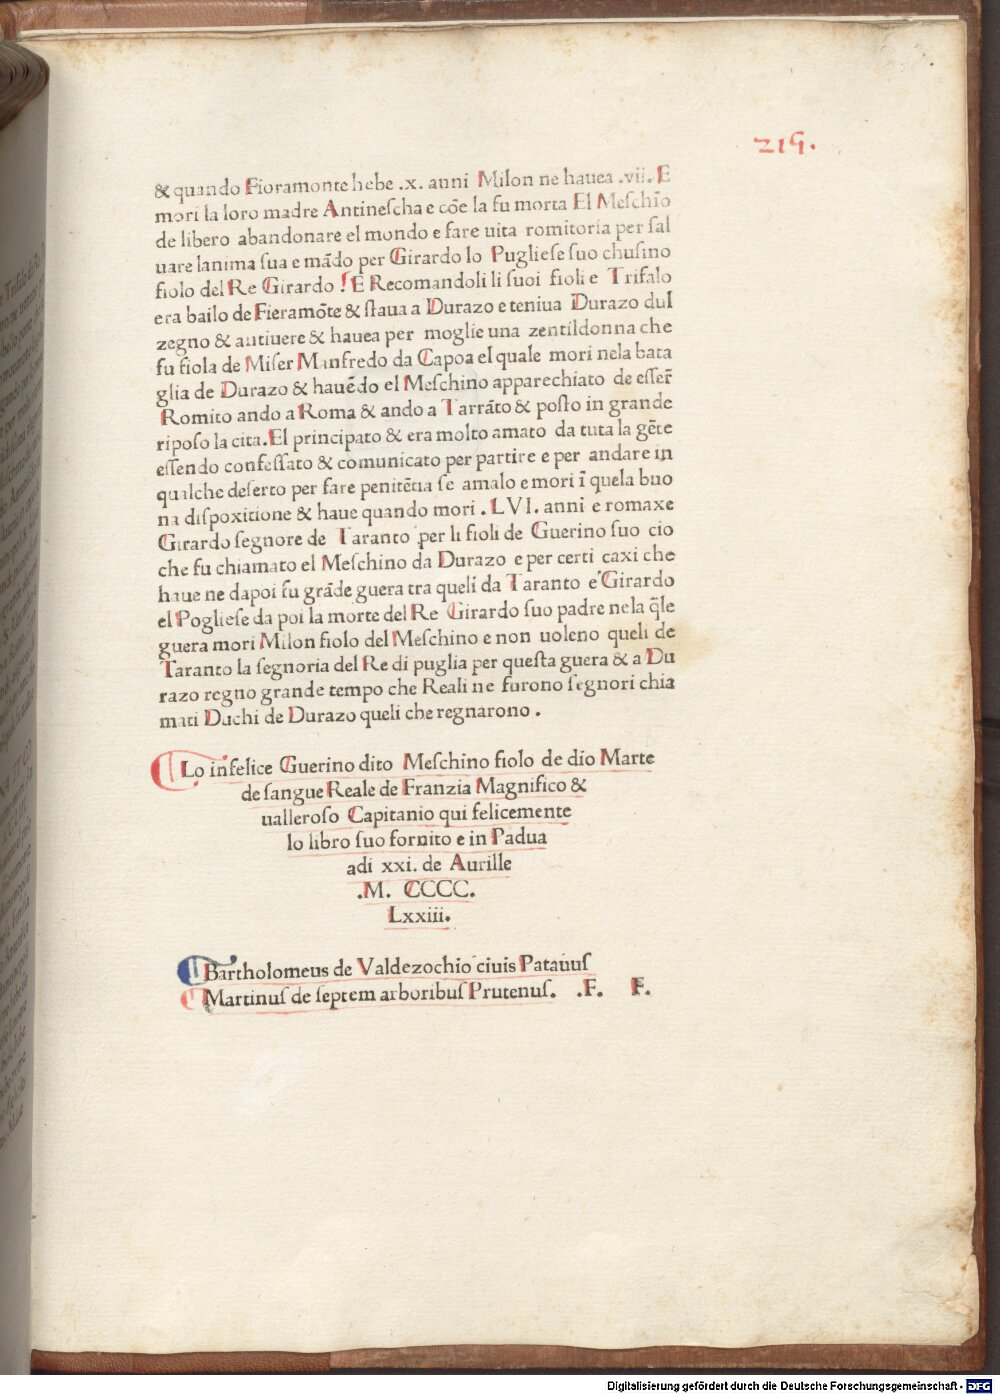 215.
& quando Fioramonte hebe .x. anni Milon ne hauea .vii. E
mori la loro madre Antinescha e cõe la fu morta El Meschĩo
de libero abandonare el mondo e fare uita romitoria per sal
uare lanima sua e mãdo per Girardo lo Pugliese suo chusino
fiolo del Re Girardo ! E Recomandoli li suoi fioli e Trifalo
era bailo de Fieramõte & staua a Durazo e teniua Durazo dul
zegno & antiuere & hauea per moglie una zentildonna che
fu fiola de Miser Manfredo da Capoa el quale mori nela bata
glia de Durazo & hauẽdo el Meschino apparechiato de esser̃
Romito ando a Roma & ando a Tarrãto & posto in grande
riposo la cita. El principato & era molto amato da tuta la gẽte
essendo confessato & comunicato per partire e per andare in
qualche deserto per fare penitẽtia se amalo e mori ĩ quela buo
na dispoxitione & haue quando mori . LVI. anni e romaxe
Girardo segnore de Taranto per li fioli de Guerino suo cio
che fu chiamato el Meschino da Durazo e per certi caxi che
haue ne dapoi fu grãde guera tra queli da Taranto e Girardo
el Pogliese da poi la morte del Re Girardo suo padre nela q̃le
guera mori Milon fiolo del Meschino e non uoleno queli de
Taranto la segnoria del Re di puglia per questa guera & a Du
razo regno grande tempo che Reali ne furono segnori chia
mati Duchi de Durazo queli che regnarono .
Lo infelice Guerino dito Meschino fiolo de dio Marte
de sangue Reale de Franzia Magnifico &
ualleroso Capitanio qui felicemente
lo libro suo fornito e in Padua
adi xxi. de Aurille
.M. CCCC.
Lxxiii.
Bartholomeus de Valdezochio ciuis Patauus
Martinus de septem arboribus Prutenus. .F. F.
Digitalisierung gefördert durch die Deutsche Forschungsgemeinschaft - DFG